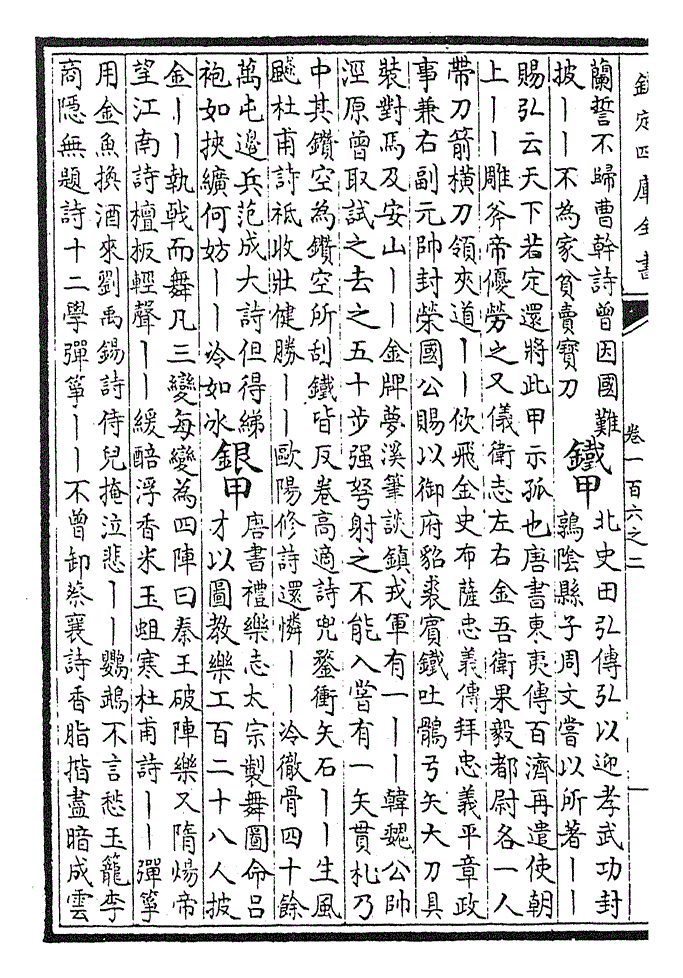 欽定四庫全書
卷一百六之二
蘭誓不歸曹幹詩曾因國難
披丨丨不為家貧賣寶刀
鐵甲
北史田弘傳弘以迎孝武功封
鶉陰縣子周文嘗以所著丨丨
賜弘云天下若定還將此甲示孤也唐書東夷傳百濟再遣使朝
上丨丨雕斧帝優勞之又儀衛志左右金吾衛果毅都尉各一人
帶刀箭横刀領夾道丨丨佽飛金史布薩忠義傳拜忠義平章政
事兼右副元帥封榮國公賜以御府貂裘賓鐵吐鶻弓矢大刀具
裝對馬及安山丨丨金牌夢溪筆談鎮戎軍有一丨丨韓魏公帥
涇原曾取試之去之五十步强弩射之不能入嘗有一矢貫札乃
中其鑽空為鑽空所刮鐵皆反卷高適詩兜鍪衝矢石丨丨生風
飈杜甫詩祗收壯健勝丨丨歐陽修詩還憐丨丨冷徹骨四十餘
萬屯邊兵范成大詩但得綈
袍如挾纊何妨丨丨冷如冰
銀甲
唐書禮樂志太宗製舞圖命吕
才以圖教樂工百二十八人披
金丨丨執戟而舞凡三變每變為四陣曰秦王破陣樂又隋煬帝
望江南詩檀板輕聲丨丨緩醅浮香米玉蛆寒杜甫詩丨丨彈箏
用金魚換酒來劉禹錫詩侍兒掩泣悲丨丨鸚鵡不言愁玉籠李
商隱無題詩十二學彈箏丨丨不曾卸蔡襄詩香脂揩盡暗成雲